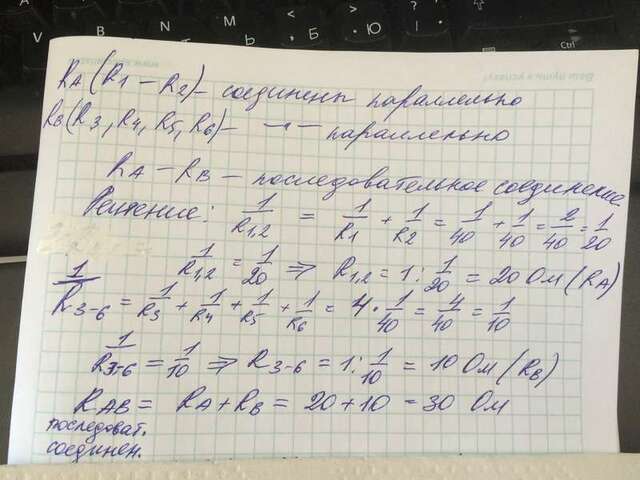 RA (R1 – R2) – соединены параллельно
RB (R3, R4, R5, R6) – –"– параллельно
RA – RB – последовательное соединение
Решение: 1/R1,2 = 1/R1 + 1/R2 = 1/40 + 1/40 = 2/40 = 1/20
1/R1,2 = 1/20 ⇒ R1,2 = 1 : 1/20 = 20 Ом (RA)
1/R3-6 = 1/R3 + 1/R4 + 1/R5 + 1/R6 = 4 • 1/40 = 4/40 = 1/10
1/R3-6 = 1/10 ⇒ R3-6 = 1 : 1/10 = 10 Ом (RB)
RAB = RA + RB = 20 + 10 = 30 Ом
последоват.
соединен.